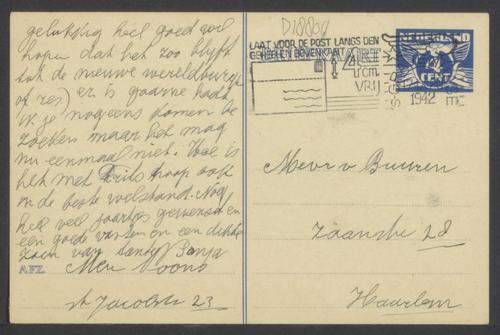 gelukkig heel goed wil
hopen dat het zoo blijft
tot de nieuwe wereldburger
(of res) er is gaarne had
ik je nog eens komen be
zoeken maar het mag
nu eenmaal niet. Hoe is
het met Frits hoop ook
in de beste welstand. Nog
heel veel jaartjes gewenscht en
een goede van en een dikke
zoen van tante Sonja
AFZ.
St Jacobstr 23
D18804
LAAT VOOR DE POST LANGS DEN
GEHEELEN BOVENKANT
14
cm
VRIJ
NEDERLAND
CENT
1942
Mevr v Buuren
28
Haarlem